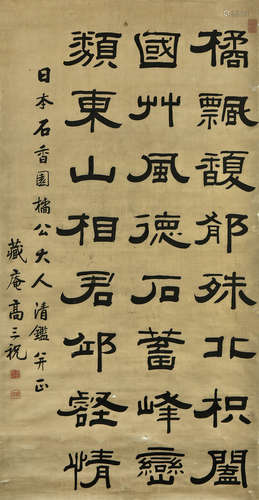 橘飄馥郁殊北枳闔
國艸風德石蓄峰巒
類東山相君邱壑情
日本石香園橘公大人清鑑并正
藏庵高三祝